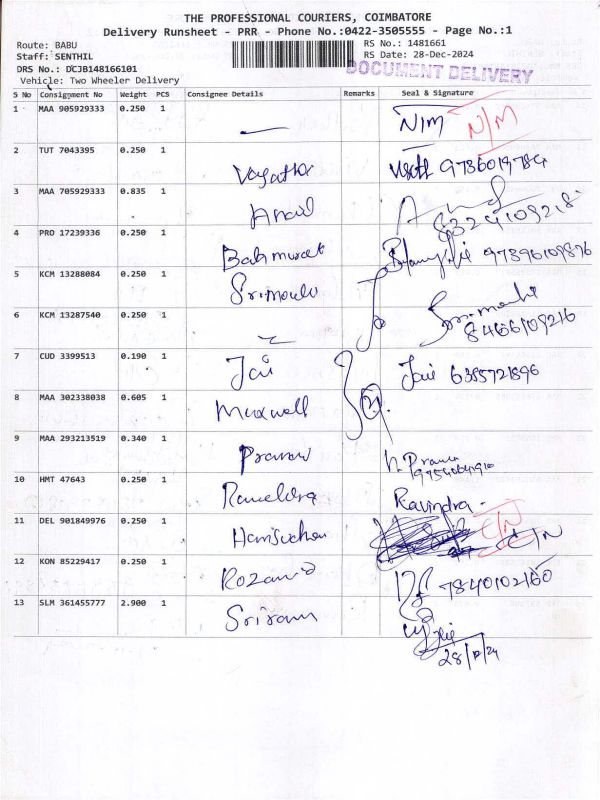 THE PROFESSIONAL COURIERS, COIMBATORE
Delivery Runsheet - PRR - Phone No.:0422-3505555 - Page No.:1
Route: BABU
RS No.: 1481661
Staff: SENTHIL
RS Date: 28-Dec-2024
DRS No.: DCJB148166101
DOCUMENT DELIVERY
Vehicle: Two Wheeler Delivery
S No Consignment No Weight PCS Consignee Details Remarks Seal & Signature
1 MAA 905929333 0.250 1 N/M N/M
2 TUT 7043395 0.250 1
3 MAA 705929333 0.835 1 8324109218
4 PRO 17239336 0.250 1 Balamurali
5 KCM 13288084 0.250 1 Srimouli
6 KCM 13287540 0.250 1 8466109216
7 CUD 3399513 0.190 1 Jai Jai 6385721896
8 MAA 302338038 0.605 1 Maxwell
9 MAA 293213519 0.340 1 Pranav
10 HMT 47643 0.250 1 Ravindra
11 DEL 901849976 0.250 1 C/N C/N
12 KON 85229417 0.250 1 7840102160
13 SLM 361455777 2.900 1 Sriram
28/12/24